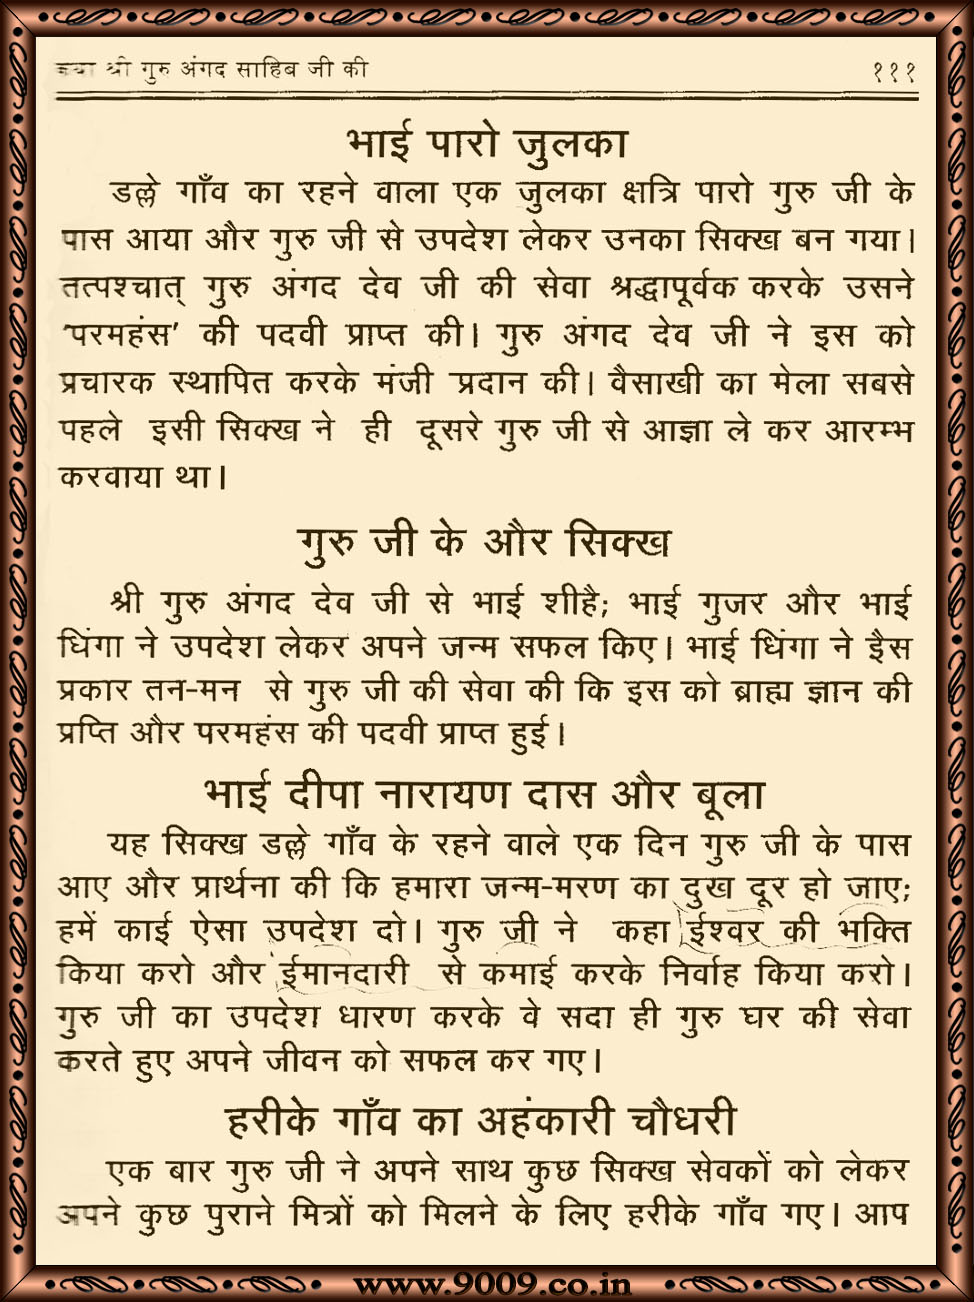 श्री गुरु अंगद साहिब जी की १११
भाई पारो जुलका
डल्ले गाँव का रहने वाला एक जुलका क्षत्रि पारो गुरु जी के
पास आया और गुरु जी से उपदेश लेकर उनका सिक्ख बन गया।
तत्पश्चात् गुरु अंगद देव जी की सेवा श्रद्धापूर्वक करके उसने
‘परमहंस’ की पदवी प्राप्त की। गुरु अंगद देव जी ने इस को
प्रचारक स्थापित करके मंजी प्रदान की। वैसाखी का मेला सबसे
पहले इसी सिक्ख ने ही दूसरे गुरु जी से आज्ञा ले कर आरम्भ
करवाया था।
गुरु जी के और सिक्ख
श्री गुरु अंगद देव जी से भाई शीहै; भाई गुजर और भाई
धिंगा ने उपदेश लेकर अपने जन्म सफल किए। भाई धिंगा ने इैस
प्रकार तन-मन से गुरु जी की सेवा की कि इस को ब्राह्म ज्ञान की
प्रप्ति और परमहंस की पदवी प्राप्त हुई।
भाई दीपा नारायण दास और बूला
यह सिक्ख डल्ले गाँव के रहने वाले एक दिन गुरु जी के पास
आए और प्रार्थना की कि हमारा जन्म-मरण का दुख दूर हो जाए;
हमें काई ऐसा उपदेश दो। गुरु जी ने कहा ईश्वर की भक्ति
किया करो और ईमानदारी से कमाई करके निर्वाह किया करो।
गुरु जी का उपदेश धारण करके वे सदा ही गुरु घर की सेवा
करते हुए अपने जीवन को सफल कर गए।
हरीके गाँव का अहंकारी चौधरी
एक बार गुरु जी ने अपने साथ कुछ सिक्ख सेवकों को लेकर
अपने कुछ पुराने मित्रों को मिलने के लिए हरीके गाँव गए। आप
www.9009.co.in